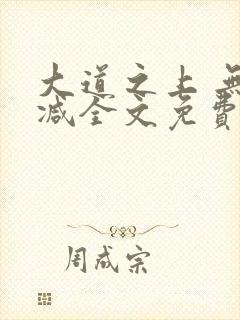 大道之上 無
减全文免費
周成宗